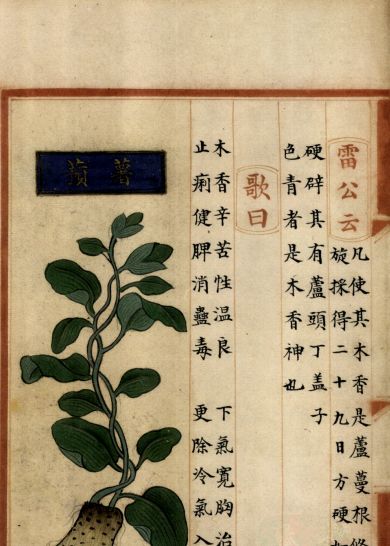 雷公云
凡使其木香是蘆蔓根
旋採得二十九日方硬
硬辟其有蘆頭丁盖子
色青者是木香神也
歌曰
木香辛苦性温良 下氣寬胸治
止痢健脾消蠱毒 更除冷氣入
薯蕷